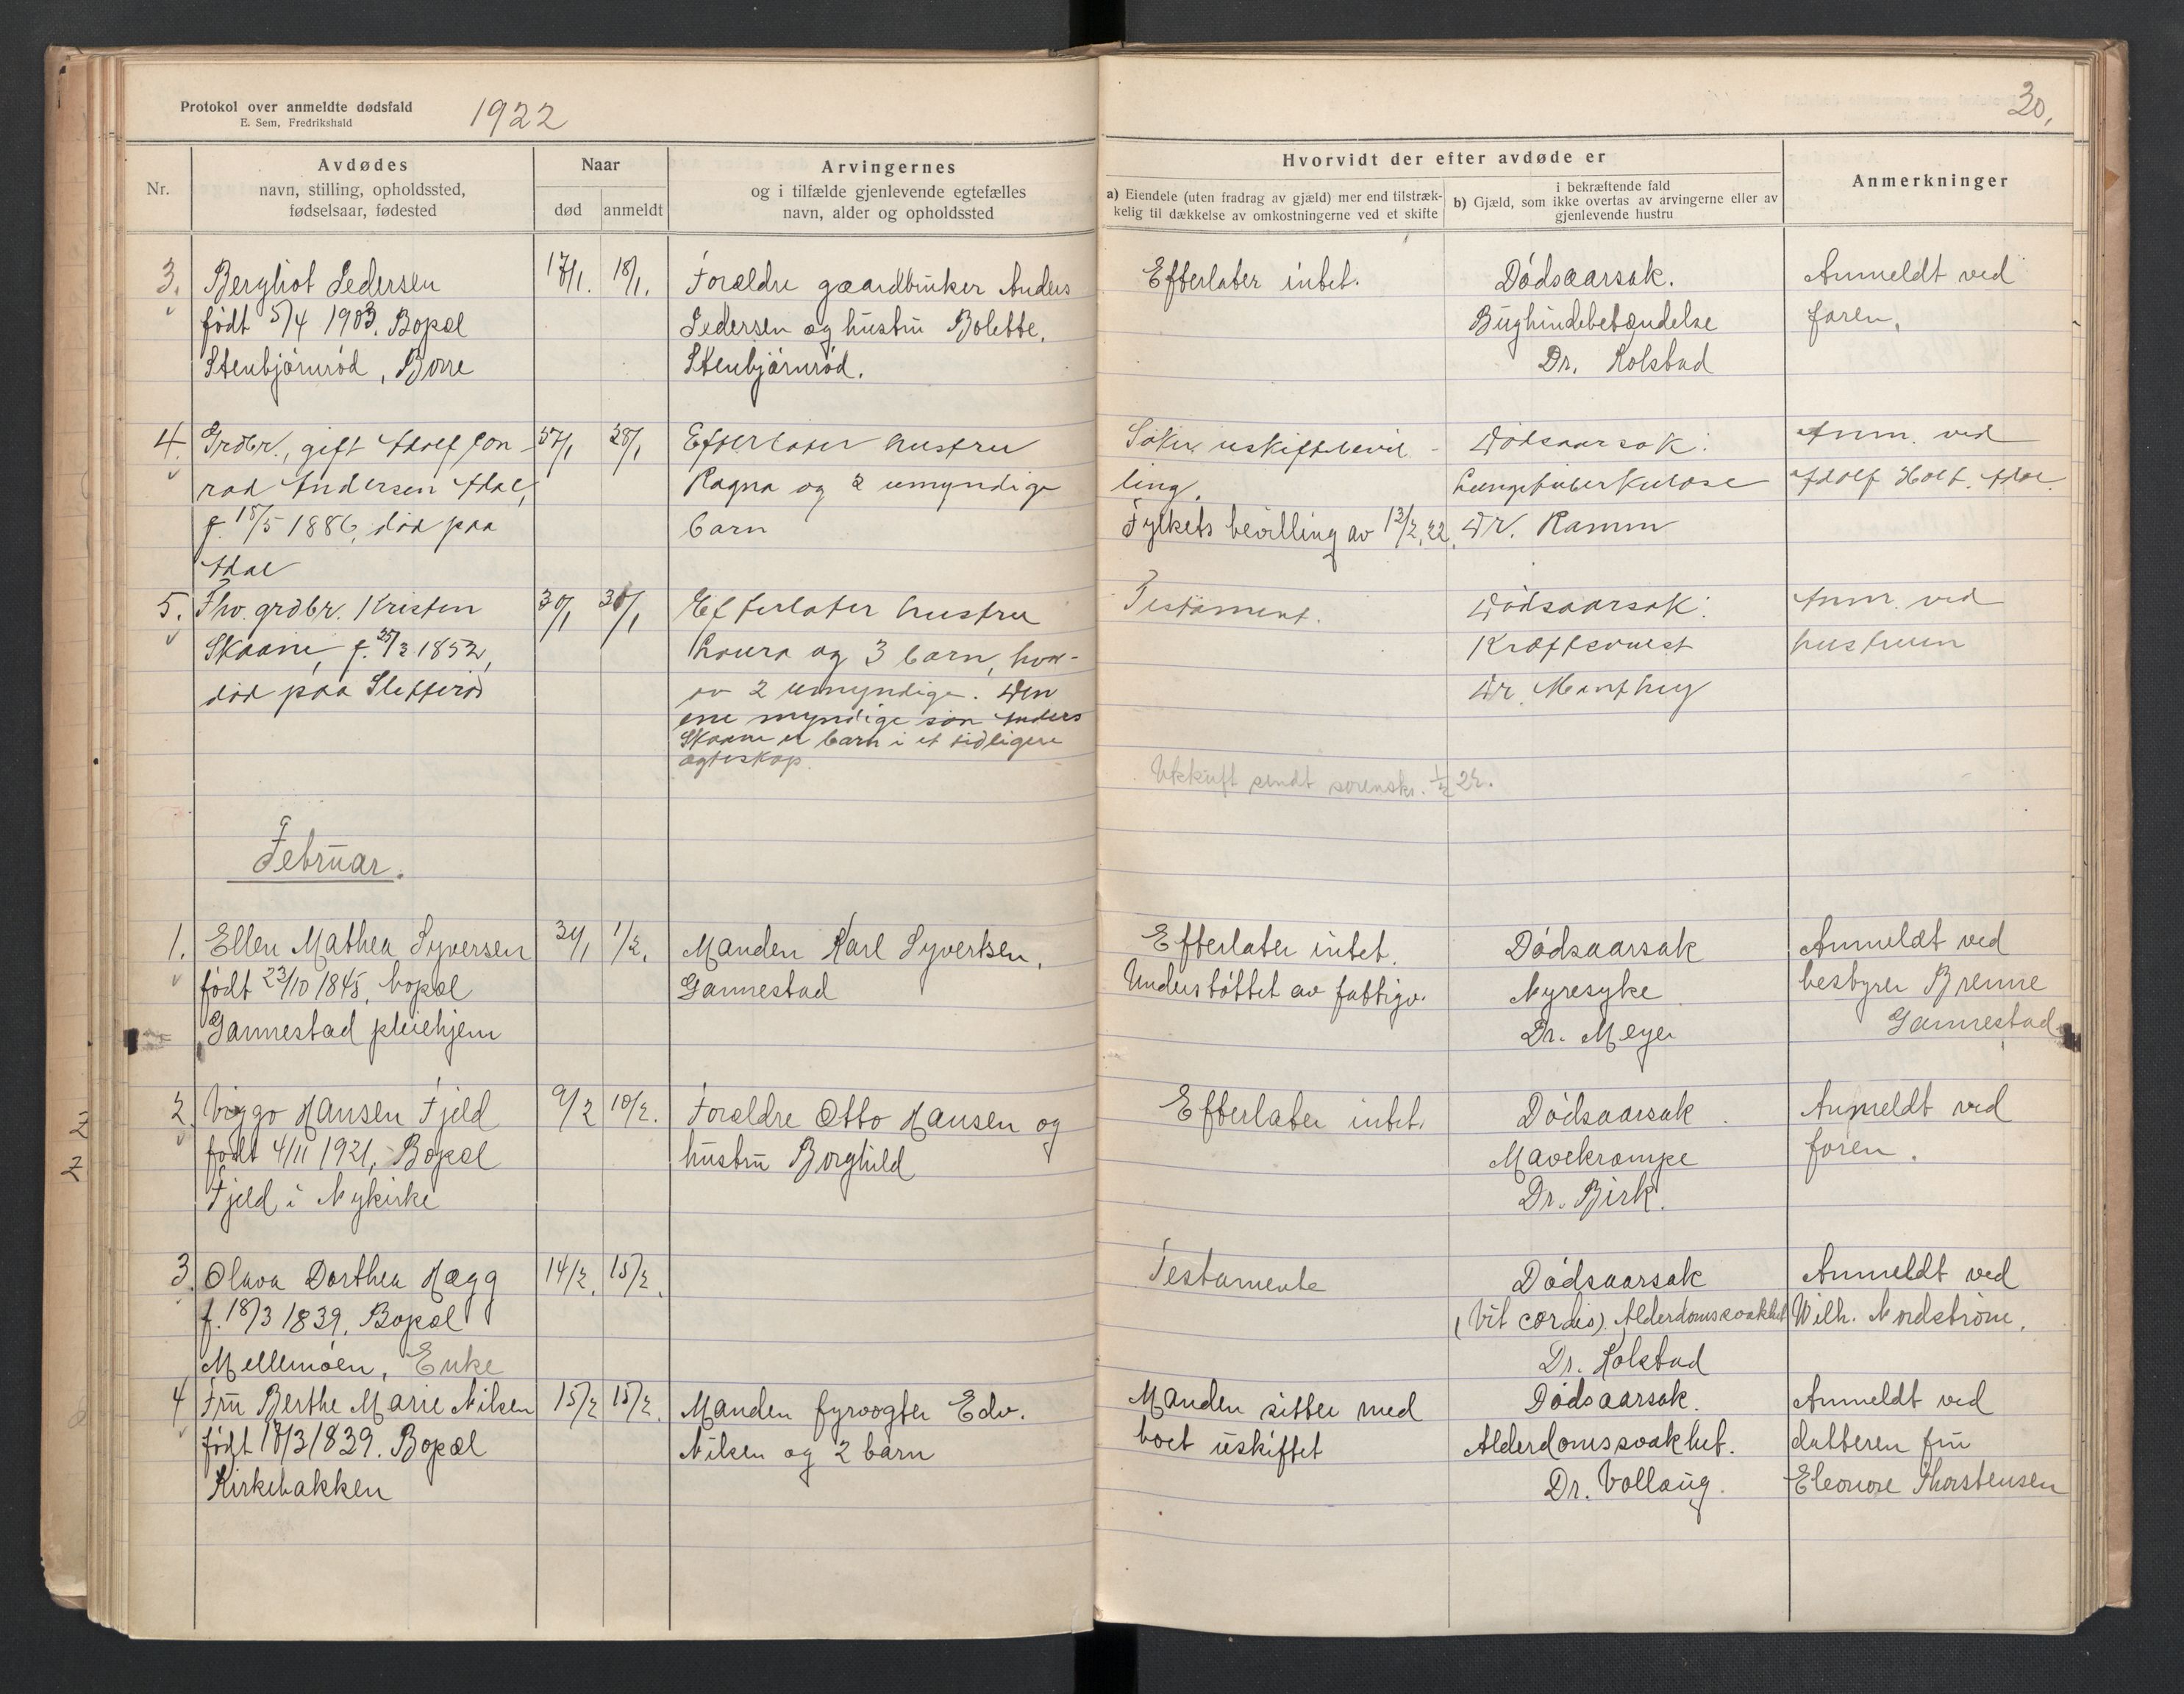 Protokol over anmeldte dødsfald
E. Sem, Fredrikshald
1922
30.
Nr.
Avdødes
navn, stilling, opholdssted,
fødselsaar, fødested
Naar
død
anmeldt
Arvingernes
og i tilfælde gjenlevende egtefælles
navn, alder og opholdssted
Hvorvidt der efter avdøde er
a) Eiendele (uten fradrag av gjæld) mer end tilstræk-
kelig til dækkelse av omkostningerne ved et skifte
i bekræftende fald
b) Gjæld, som ikke overtas av arvingerne eller av
gjenlevende hustru
Anmerkninger
3. Bergliot Pedersen
født 5/4 1903. Bopæl
Stenbjørnrød, Borre
17/1. 18/1.
Forældre gaardbruker Anders
Pedersen og hustru Bolette,
Stenbjørnrød.
Efterlater intet.
Dødsaarsak.
Bughindebetændelse
Dr. Holstad
Anmeldt ved
faren.
4. Grdbr., gift Adolf Con-
rad Andersen Adal,
f. 18/5 1886, død paa
Adal
27/1 28/1
Efterlater hustru
Ragna og 2 umyndige
barn
Søker uskiftebevil-
ling.
Fylkets bevilling av 13/2 22.
Dødsaarsak:
Lungetuberkulose
Dr. Ramm
Anm. ved
Adolf Holt, Adal.
5. Fhv. grdbr. Kristen
Skaane, f. 25/3 1852,
død paa Sletterød
30/1 30/1
Efterlater hustru
Laura og 3 barn, hvor-
av 2 umyndige. Den
ene myndige søn Anders
Skaane er barn i et tidligere
ægteskap.
Testament.
Dødsaarsak:
Kræftsvulst
Dr. Manthey
Anm. ved
hustruen
Utskrift sendt sorenskr. 1/2 22.
Februar.
1. Ellen Mathea Syversen
født 23/10 1845, bopæl
Gannestad pleiehjem
31/1 1/2.
Manden Karl Syvertsen,
Gannestad
Efterlater intet.
Understøttet av fattigv.
Dødsaarsak
Nyresyke
Dr. Meyer
Anmeldt ved
bestyrer Brenne
Gannestad
2. Viggo Hansen Fjeld
født 4/11 1921, Bopæl
Fjeld i Nykirke
9/2 10/2.
Forældre Otto Hansen og
hustru Borghild
Efterlater intet.
Dødsaarsak.
Mavekrampe
Dr. Birk.
Anmeldt ved
faren.
3. Olava Dorthea Hægg
f. 18/3 1839, Bopæl
Mellemøen, Enke
14/2. 15/2.
Testamente
Dødsaarsak
(Vit cordis). Alderdomssvakhet
Dr. Holstad
Anmeldt ved
Wilh. Nordstrøm.
4 Fru Berthe Marie Nilsen
født 18/3 1839. Bopæl
Kirkebakken
15/2 15/2.
Manden fyrvogter Edv.
Nilsen og 2 barn
Manden sitter med
boet uskiftet
Dødsaarsak.
Alderdomssvakhet.
Dr. Vollaug.
Anmeldt ved
datteren fru
Eleonore Thorstensen